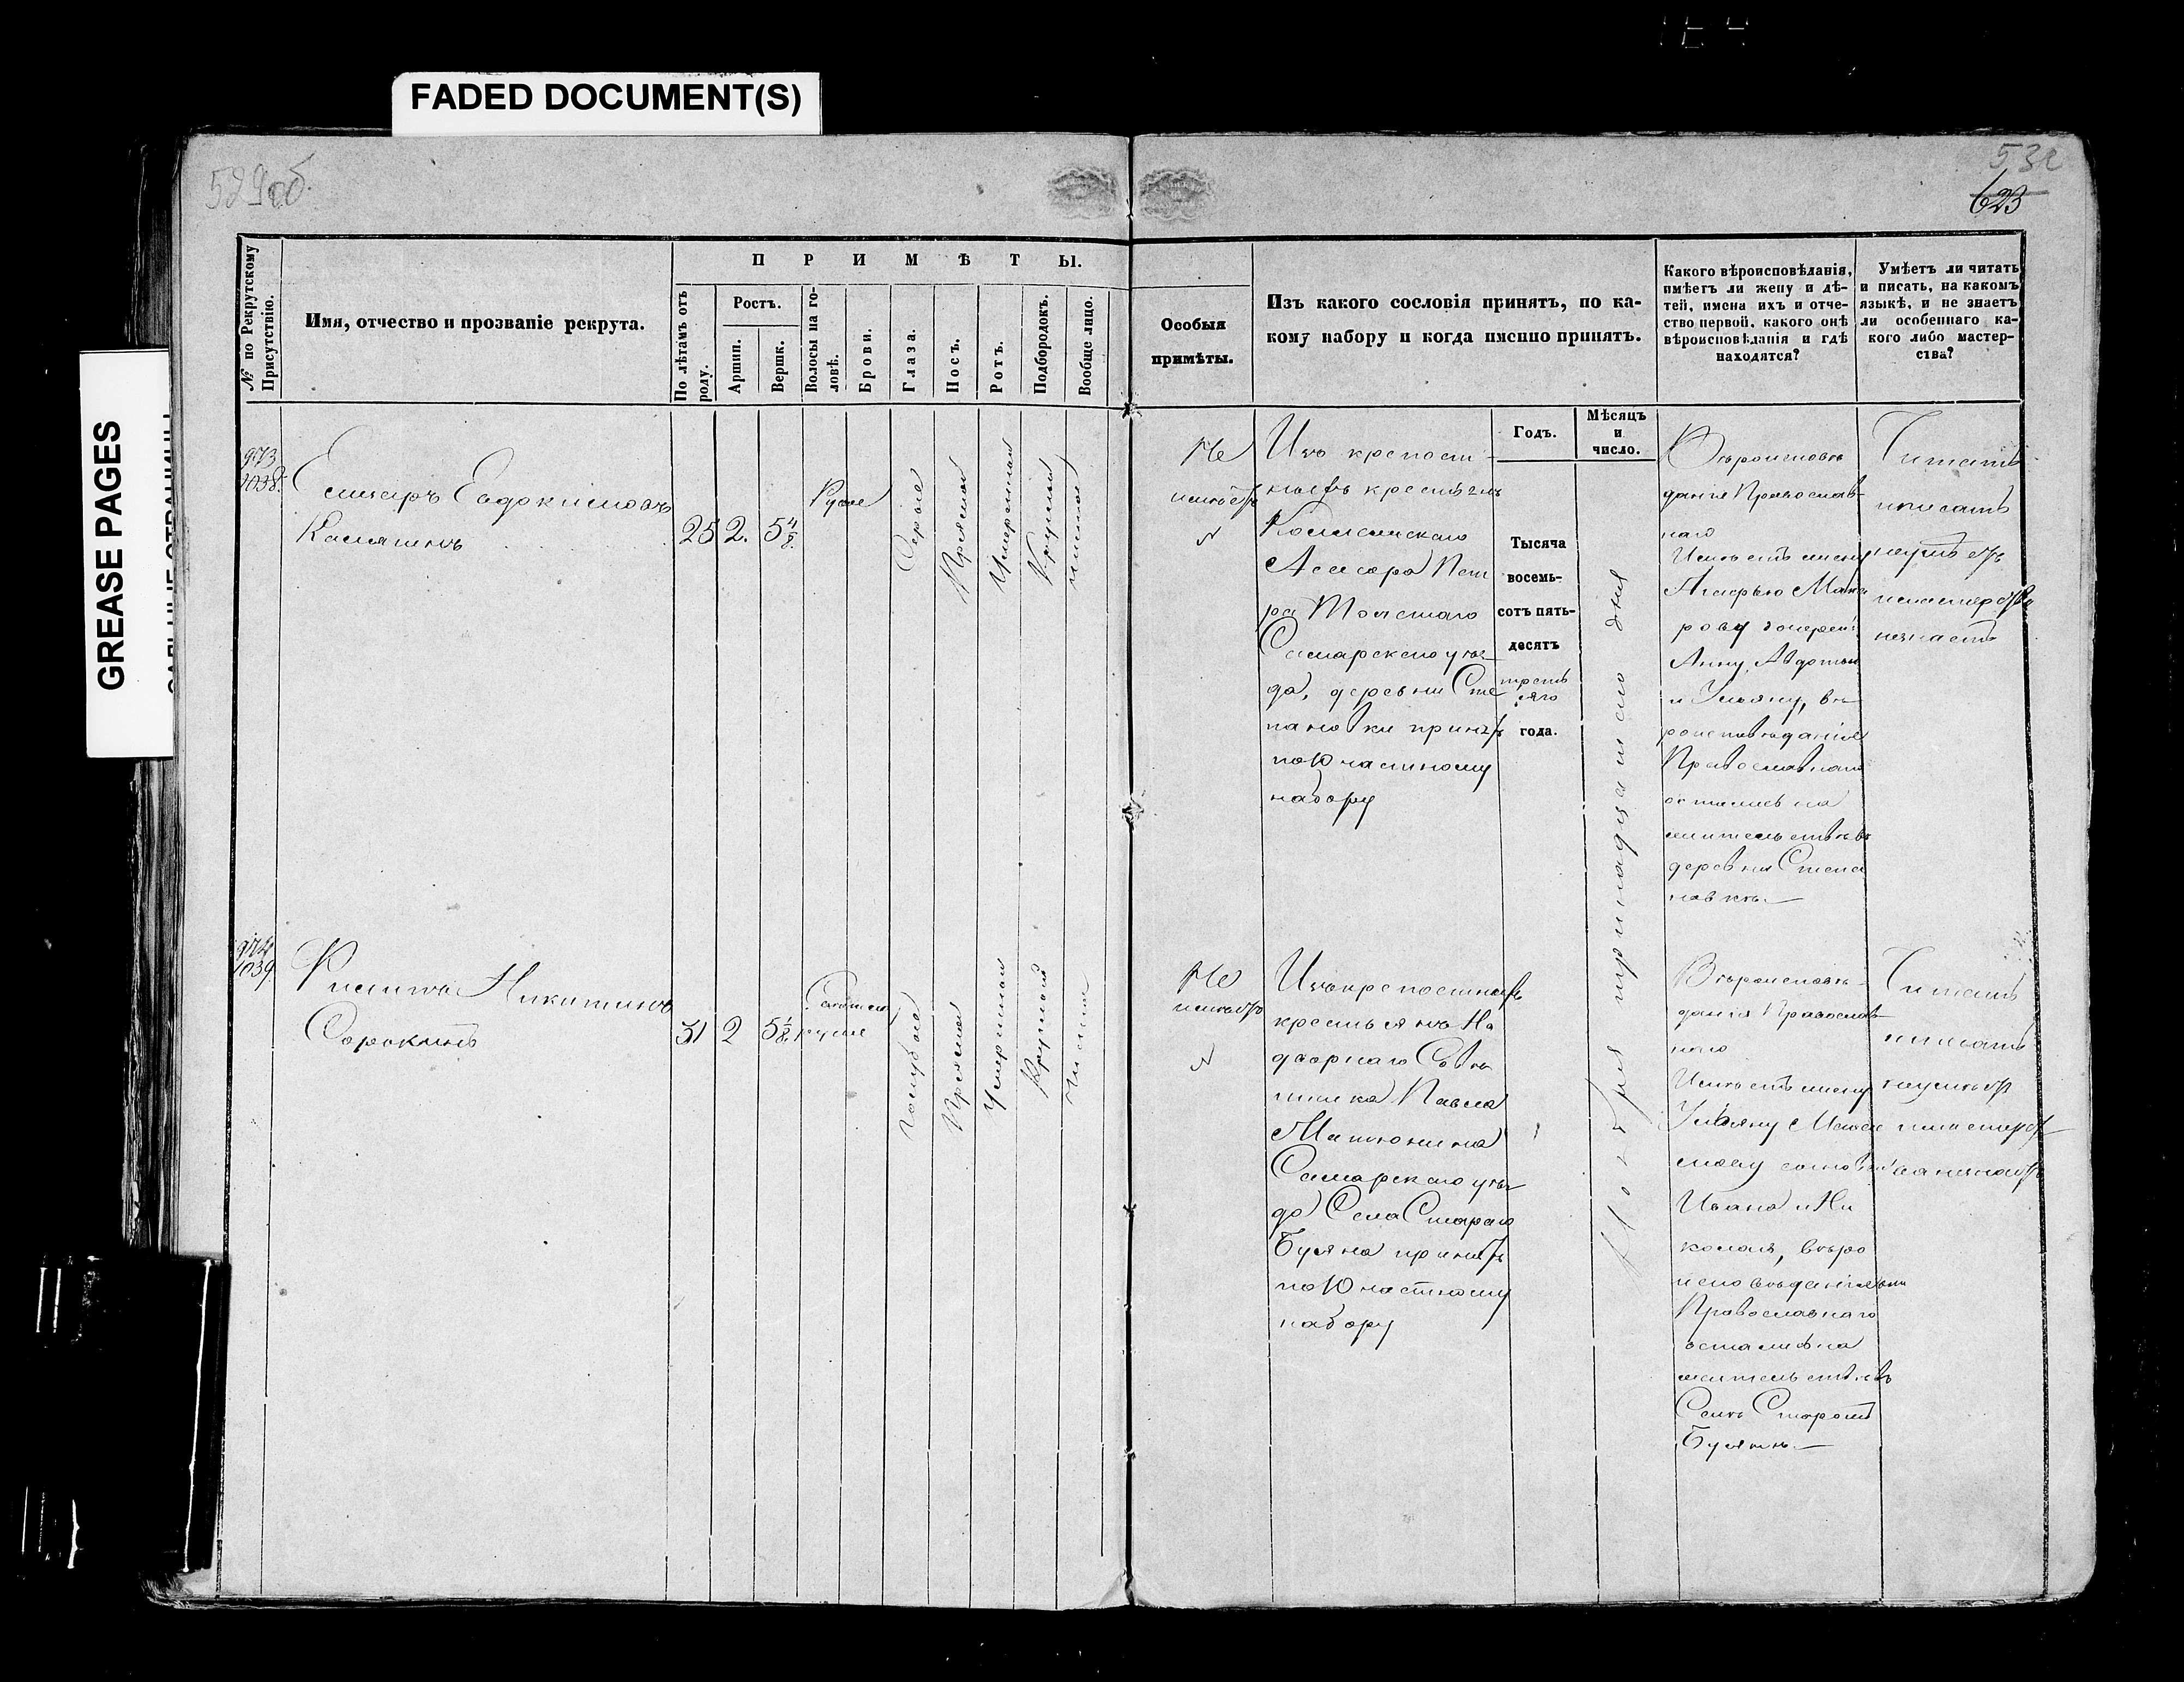 FADED DOCUMENT(S)
GREASE PAGES
529об.
530
623
№ по Рекрутскому Присутствію.
Имя, отчество и прозваніе рекрута.
ПРИМѢТЫ.
По лѣтамъ отъ роду.
Ростъ.
Аршин.
Вершк.
Волосы на головѣ.
Брови.
Глаза.
Носъ.
Ротъ.
Подбородокъ.
Вообще лицо.
Особыя
примѣты.
Изъ какого сословія принятъ, по ка-
кому набору и когда именно принятъ.
Какого вѣроисповѣданія,
имѣетъ ли жену и дѣ-
тей, имена ихъ и отче-
ство первой, какого онѣ
вѣроисповѣданія и гдѣ
находятся?
Умѣетъ ли читать
и писать, на какомъ
языкѣ, и не знаетъ
ли особеннаго ка-
кого либо мастер-
ства?
Годъ.
Мѣсяцъ
и
число.
973
1038.
Евдокимовъ
25
2.
5 4/8.
Русые
Серые
Прямой
Умеренный
Круглый
чистое
Не
имеетъ
Изъ крепост-
ныхъ крестьянъ
Асесора Пет
ра Толстаго
Самарскаго уез-
да, деревни Сте
пановки принятъ
по 10 частному
набору
Тысяча
восемь-
сотъ пять-
десятъ
треть
яго
года.
Ноября тринадцатаго дня
Вероиспове
данія Православ-
наго
Имеетъ жену
Агафью Мака
рову дочерей:
Анну, Авдотью
и Ульяну, ве-
роисповеданія
Православнаго
остались на
жительстве въ
деревни Степа
новке.
Читать
писать
неумеетъ
мастерства
незнаетъ
974
1039
Филипъ Никитинъ
Сорокинъ
31
2
5 1/8.
Светло
русые
Голубые
Прямой
Умеренный
Круглый
Чистое
Не
имеетъ
Изъ крепостныхъ
крестьянъ На
дворнаго Сове
тника Павла
Самарскаго уез-
да Села Стараго
Буяна принятъ
по 10 частному
набору
Вероисповѣ-
данія Православ
наго
Имеетъ жену
Ульяну
сыновей
Ивана и Ни
колая, веро
исповеданія
Православнаго
остались на
жительстве въ
Селе Старомъ
Буяне.
Читать
писать
неумеетъ
мастерст
ва незнаетъ